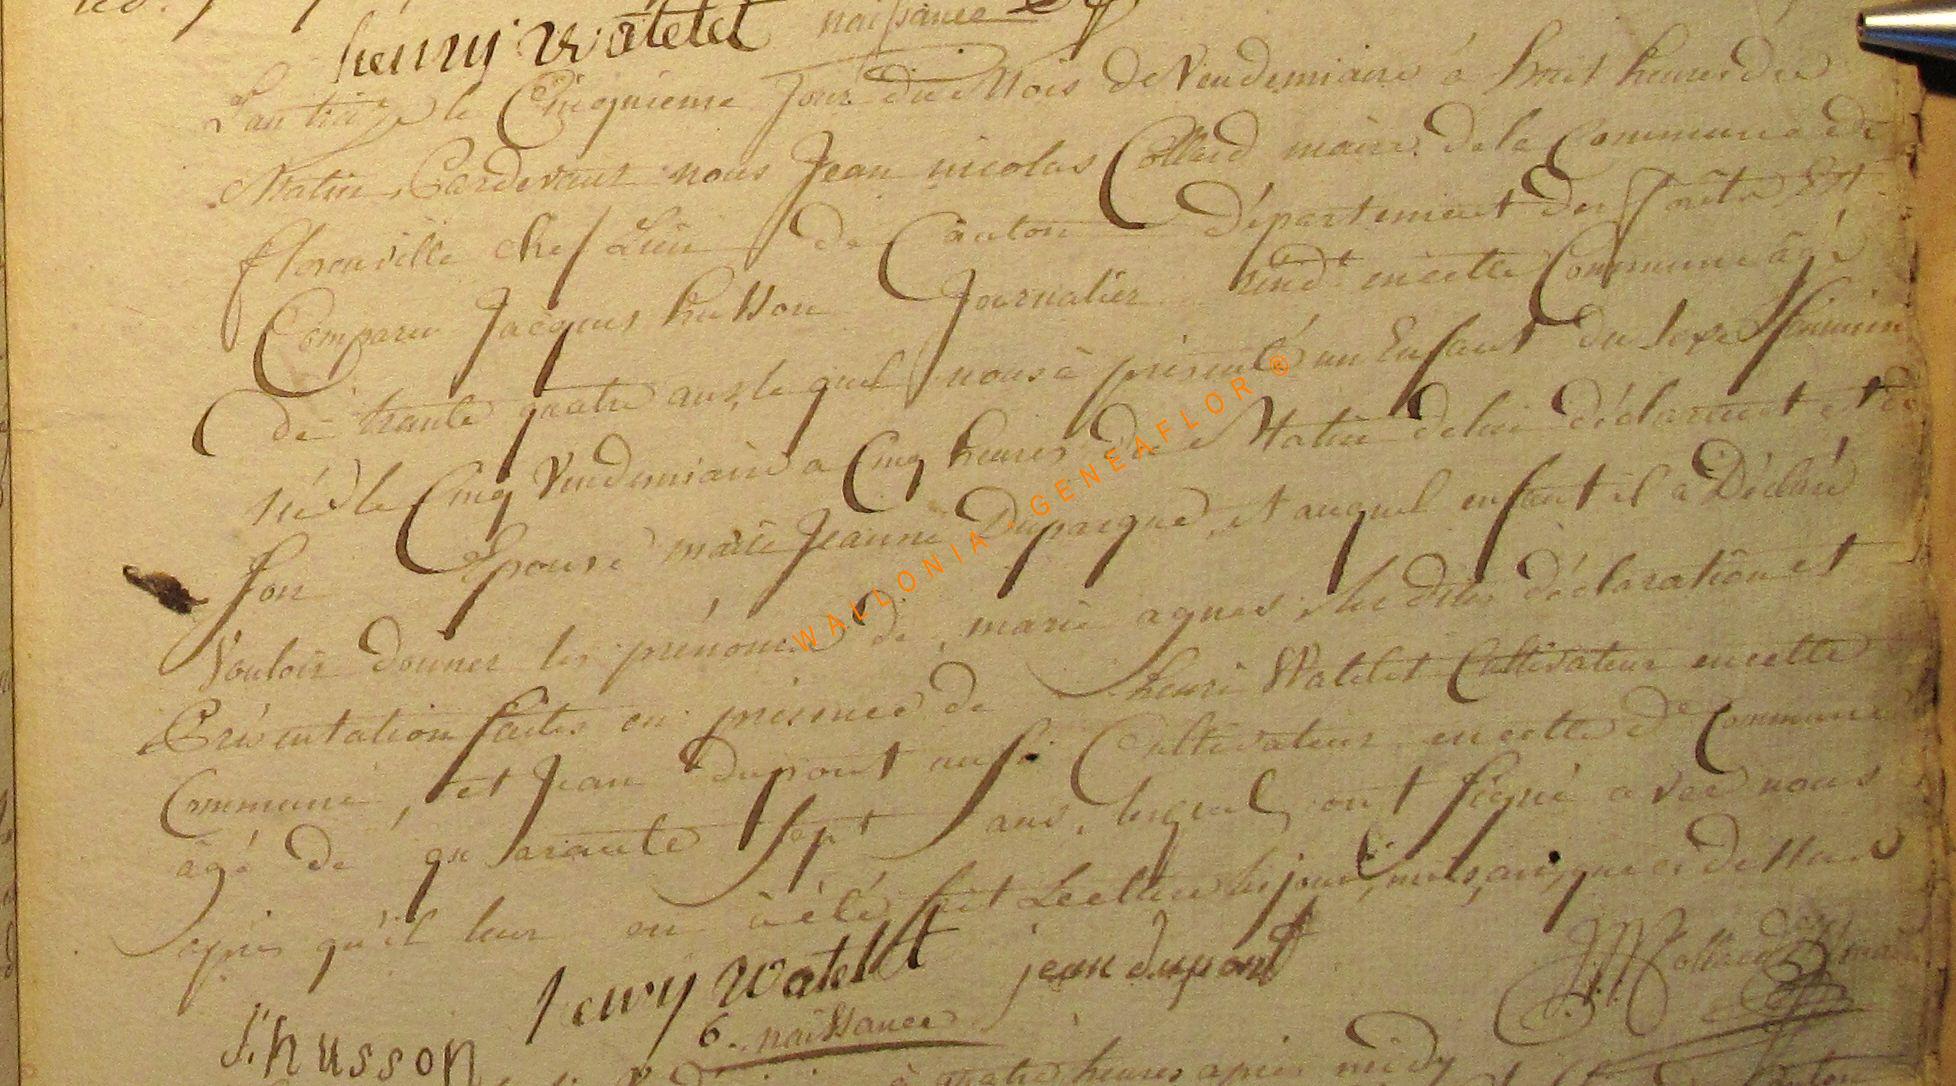 henry watelet naissance
L'an treize le Cinquieme jour du Mois de Vendemiaire à huit heures du
Matin, Pardevant nous Jean nicolas Collard maire de la Commune de
florenville chef Lieu de Canton Département des forêts Est
Comparu Jacques husson Journalier résid.t en cette Commune âgé
de trante quatre ans, le quel nous à présenté un Enfant du sexe féminin
née le Cinq Vendemiaire a Cinq heures du Matin de lui déclarant et de
son Epouse marie Jeanne Duparque, et auquel enfant il a Déclaré
Vouloir donner les prénoms de marie agnes, les dites déclaration et
Présentation faites en présence de henri Watelet Cultivateur en cette
Commune, et Jean dupont aussi Cultivateur en cette d.e Commune
âgé de quarante sept ans, lesquels ont signé avec nous
après qu'il leur en à été fait Lecture les jour, mois, an, que ci dessus
henry watelet jean dupont JN Collard maire
J. husson
6. naissance
à quatre heures apriés midy
WALLONIA GENEAFLOR ®